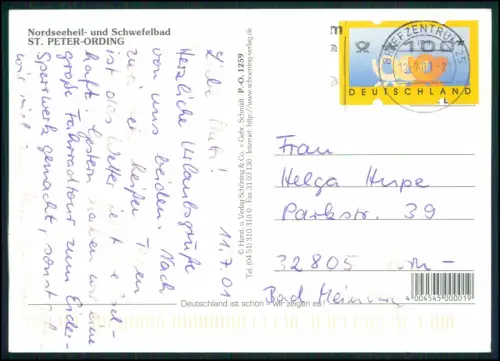 Nordseeheil- und Schwefelbad
ST. PETER-ORDING
11.7.01
Liebe Mutti!
Herzliche Urlaubsgrüße
von uns beiden. Nach
zwei sehr heißen Tagen
ist das Wetter jetzt
haft. Gestern haben wir eine
große Fahrradtour zum Eider-
Sperrwerk gemacht, sonst
wir viel
© Herst. u. Verlag Schöning & Co. + Gebr. Schmidt P.-O. 1259
Tel. (04 51) 310 310 · Fax 31 03 130 · Internet: http://www.schoening-verlag.de
Deutschland ist schön - wir zeigen es!
BRIEFZENTRUM 25
100
DEUTSCHLAND
Frau
Helga Hupe
Parkstr. 39
32805
Bad Meinberg
4 004545 000019